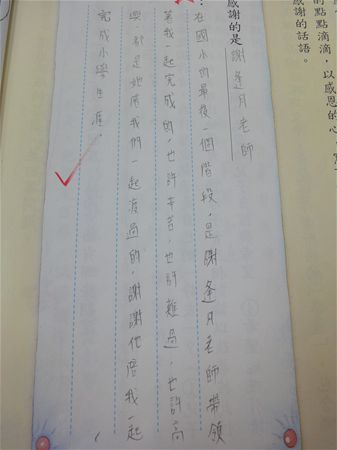 的點點滴滴，以感恩的心，
感謝的話語。
感謝的是謝逢月老師
：
在國小的最後一個階段，是謝逢月老師帶領
著我一起完成的，也許辛苦，也許難過，也許高
興都是她陪我們一起渡過的，謝謝他陪我一起
完成小學生涯。